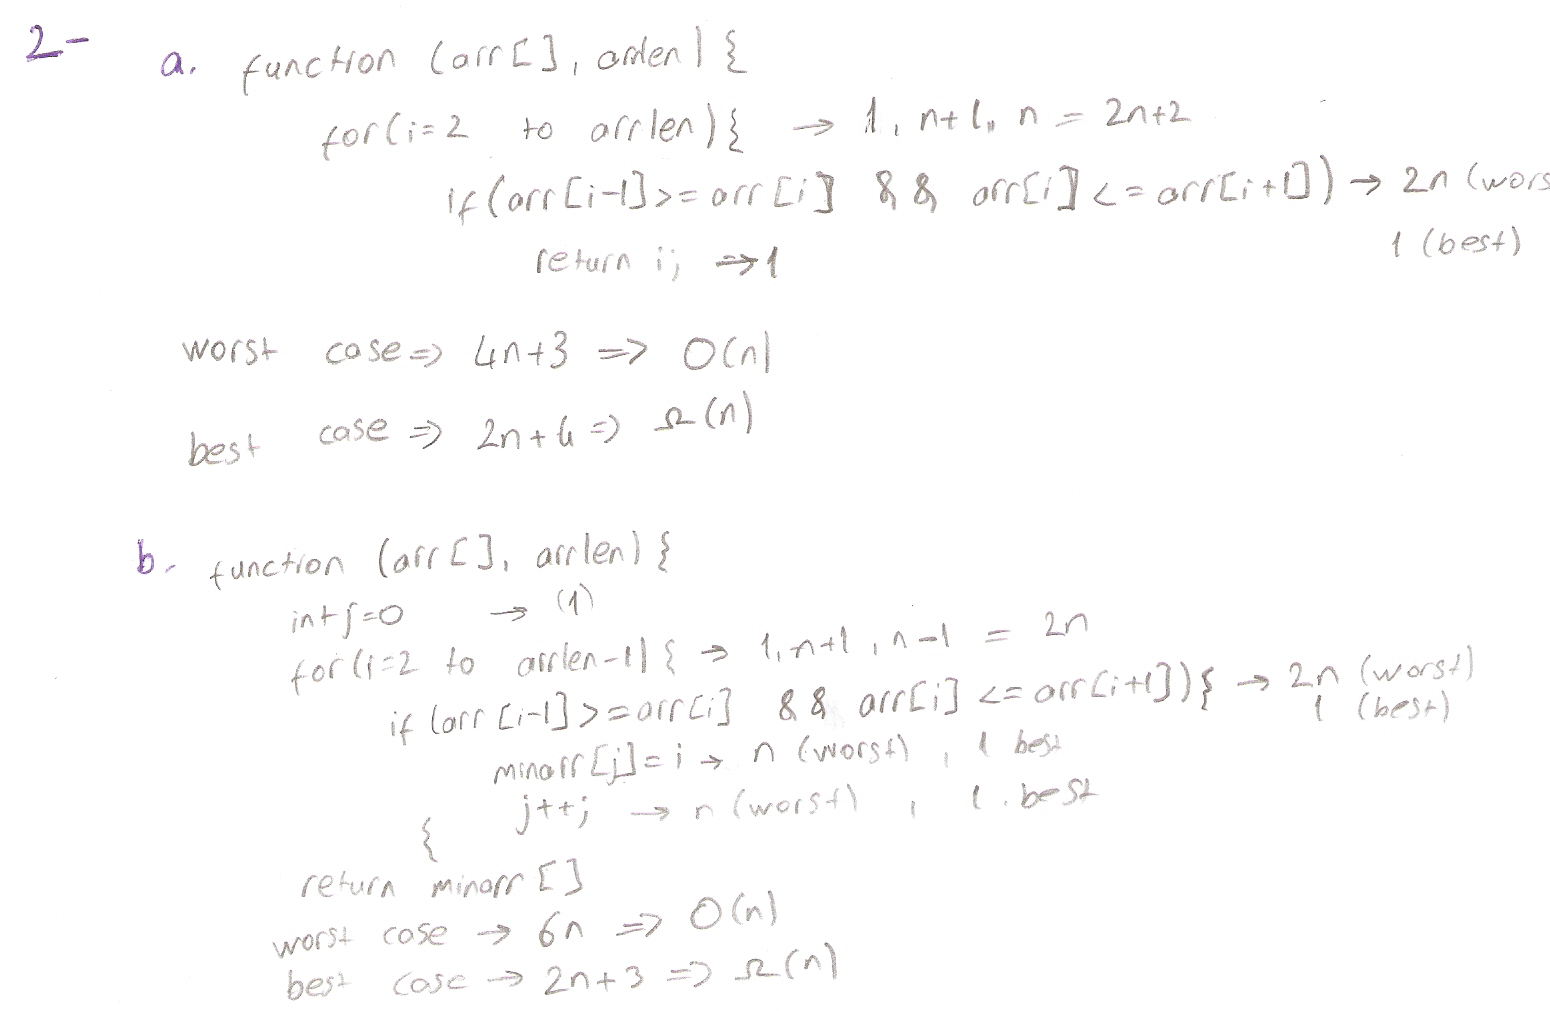 2-
a. function (arr[], arrlen) {
for(i=2 to arrlen){ → 1, n+1, n = 2n+2
if(arr[i-1]>=arr[i] && arr[i]<=arr[i+1]) → 2n (wors
1 (best)
return i; ⇒1
worst case ⇒ 4n+3 ⇒ O(n)
best case ⇒ 2n+4 ⇒ Ω(n)
b. function (arr[], arrlen) {
int j=0 → (1)
for(i=2 to arrlen-1) { → 1, n+1, n-1 = 2n
if (arr[i-1]>=arr[i] && arr[i]<=arr[i+1]){ → 2n (worst)
1 (best)
minarr[j]=i → n (worst), 1 best
j++; → n (worst), 1. best
{
return minarr[]
worst case → 6n ⇒ O(n)
best case → 2n+3 ⇒ Ω(n)